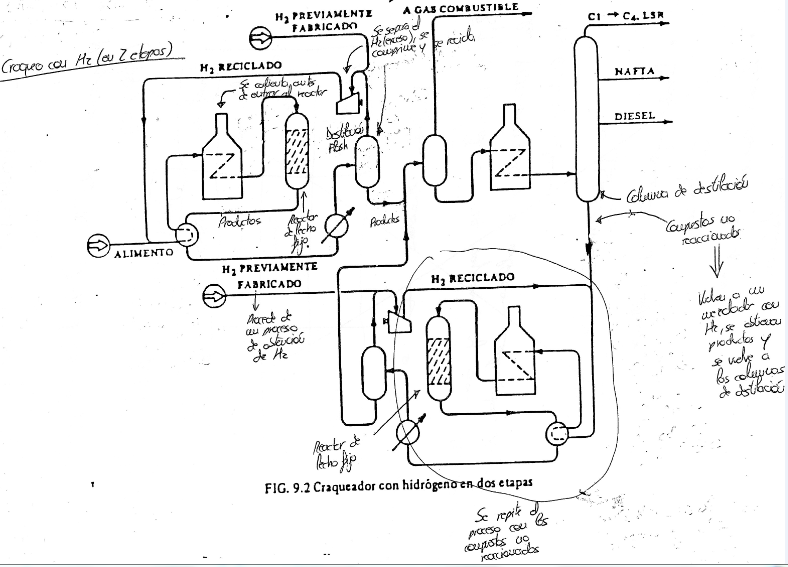 Craqueo con H2 (en 2 etapas)
H2 PREVIAMENTE
FABRICADO
A GAS COMBUSTIBLE
C1 → C4. LSR
Se separa el
H2 (exceso), se
comprime y se recicla
H2 RECICLADO
Se calienta antes
de entrar al reactor
NAFTA
DIESEL
Destilación
flash
Productos
Reactor
de lecho
fijo.
Productos
ALIMENTO
Columna de destilación
Compuestos no
reaccionados
H2 PREVIAMENTE
FABRICADO
H2 RECICLADO
Procede de
un proceso
de obtención
de H2
a un
mezclador con
H2, se obtienen
productos y
se vuelve a
las columnas
de destilación
Reactor de
lecho fijo
FIG. 9.2 Craqueador con hidrógeno en dos etapas
Se repite el
proceso con los
compuestos no
reaccionados